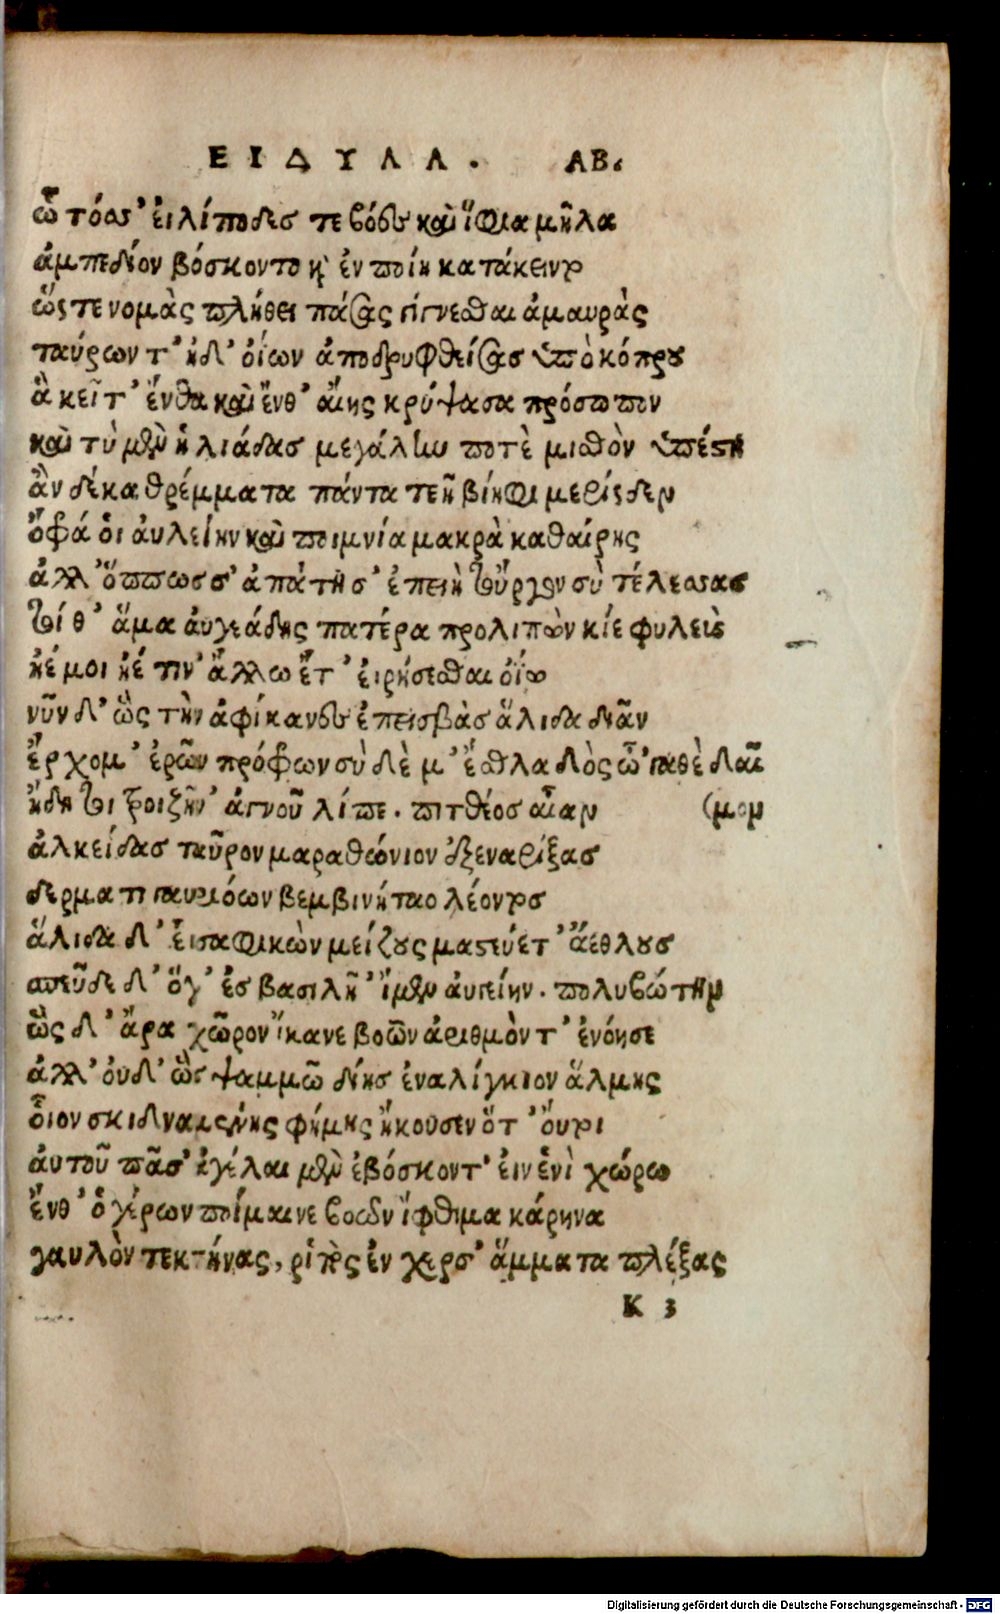 ΕΙΔΥΛΛ. ΛΒ.
ὧ τόσσ' εἰλίποδες τε βόες καὶ ἴφια μῆλα
ἀμπεδίον βόσκοντο κ' ἐν ποίη κατάκειντο
ὥς τε νομὰς πλήθει πάσας γίγνεσθαι ἀμαυρὰς
ταύρων τ' ἠδ' ὀίων ἀποδρυφθείσας ὑπὸ κόπρου
ἃ κεῖτ' ἔνθα καὶ ἔνθ' αἴης κρύψασα πρόσωπον
καὶ τὺ μὲν ἡλιάδας μεγάλην ποτὲ μισθὸν ὑπέστη
ἂν δέκα θρέμματα πάντα τεῇ βίηφι μερίσδεν
ὄφρά οἱ αὐλείην καὶ ποιμνία μακρὰ καθαίρης
ἀλλ' ὅππως σ' ἀπάτησ' ἐπειὴ τοὖργον σὺ τέλεσσας
τοί θ' ἅμα αὐγειάδης πατέρα προλιπὼν κίε φυλεὺς
ἠέ μοι ἠέ τιν' ἄλλω ἔτ' εἰρήσεσθαι ὀΐω
νῦν δ' ὣς τὴν ἀφίκανες ἐπεισβὰς ἄλιδα δῖαν
ἔρχομ' ἐρῶν πρόφρων σὺ δὲ μ' ἔσθλα δὸς
ἤδη τοι τροιζῆν' ἁγνοῦ λίπε. πιτθέος αἶαν (μον
ἀλκείδας ταῦρον μαραθώνιον ἐξεναρίξας
δερμα τι βεμβινήταο λέοντος
ἄλιδα δ' εἰσαφικὼν μείζους μαστεύετ' ἀέθλους
σπεῦδε δ' ὅγ' ἐς βασιλῆ' ἴμεν αὐγείην. πολυβώτην
ὣς δ' ἄρα χῶρον ἵκανε βοῶν ἀριθμὸν τ' ἐνόησε
ἀλλ' οὐδ' ὣς ψαμμῶ δίης ἐναλίγκιον ἅλμης
οἷον φήμης ἤκουσεν ὅτ' οὔτι
αὐτοῦ πᾶσ' ἀγέλαι μὲν ἐβόσκοντ' εἰν ἑνὶ χώρω
ἔνθ' ὁ γέρων ποίμαινε βοῶν ἴφθιμα κάρηνα
γαυλὸν τεκτήνας, ἐν χερσ' ἅμματα πλέξας
K 3
Digitalisierung gefördert durch die Deutsche Forschungsgemeinschaft - DFG